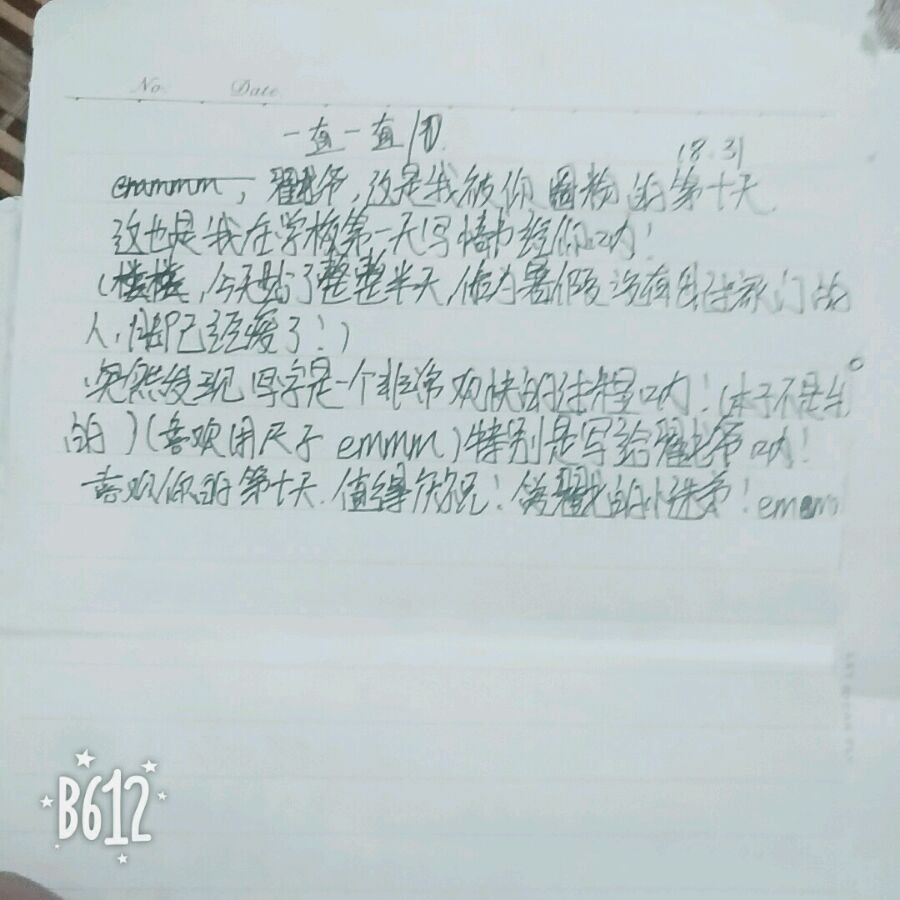 No. Date.
一直一直
(8.31
emmmm,翟爷,这是我被你圈粉的第十天.
这也是我在学校第一天写情书给你呐!
(楼楼,今天站了整整半天,作为暑假没有出过家门的
人,脚已经废了!)
突然发现写字是一个非常欢快的过程呐!(本子不是
的)(喜欢用尺子emmm)特别是写给翟爷呐!
喜欢你的第十天.值得庆祝! emmm
B612